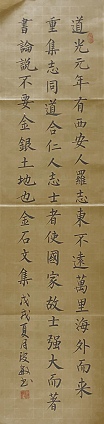 道光元年有西安人羅志東不遠萬里海外而來
重集志同道合仁人志士者使國家故士強大而著
書論說不要金銀土地也金石文集戊戌夏月段敏書